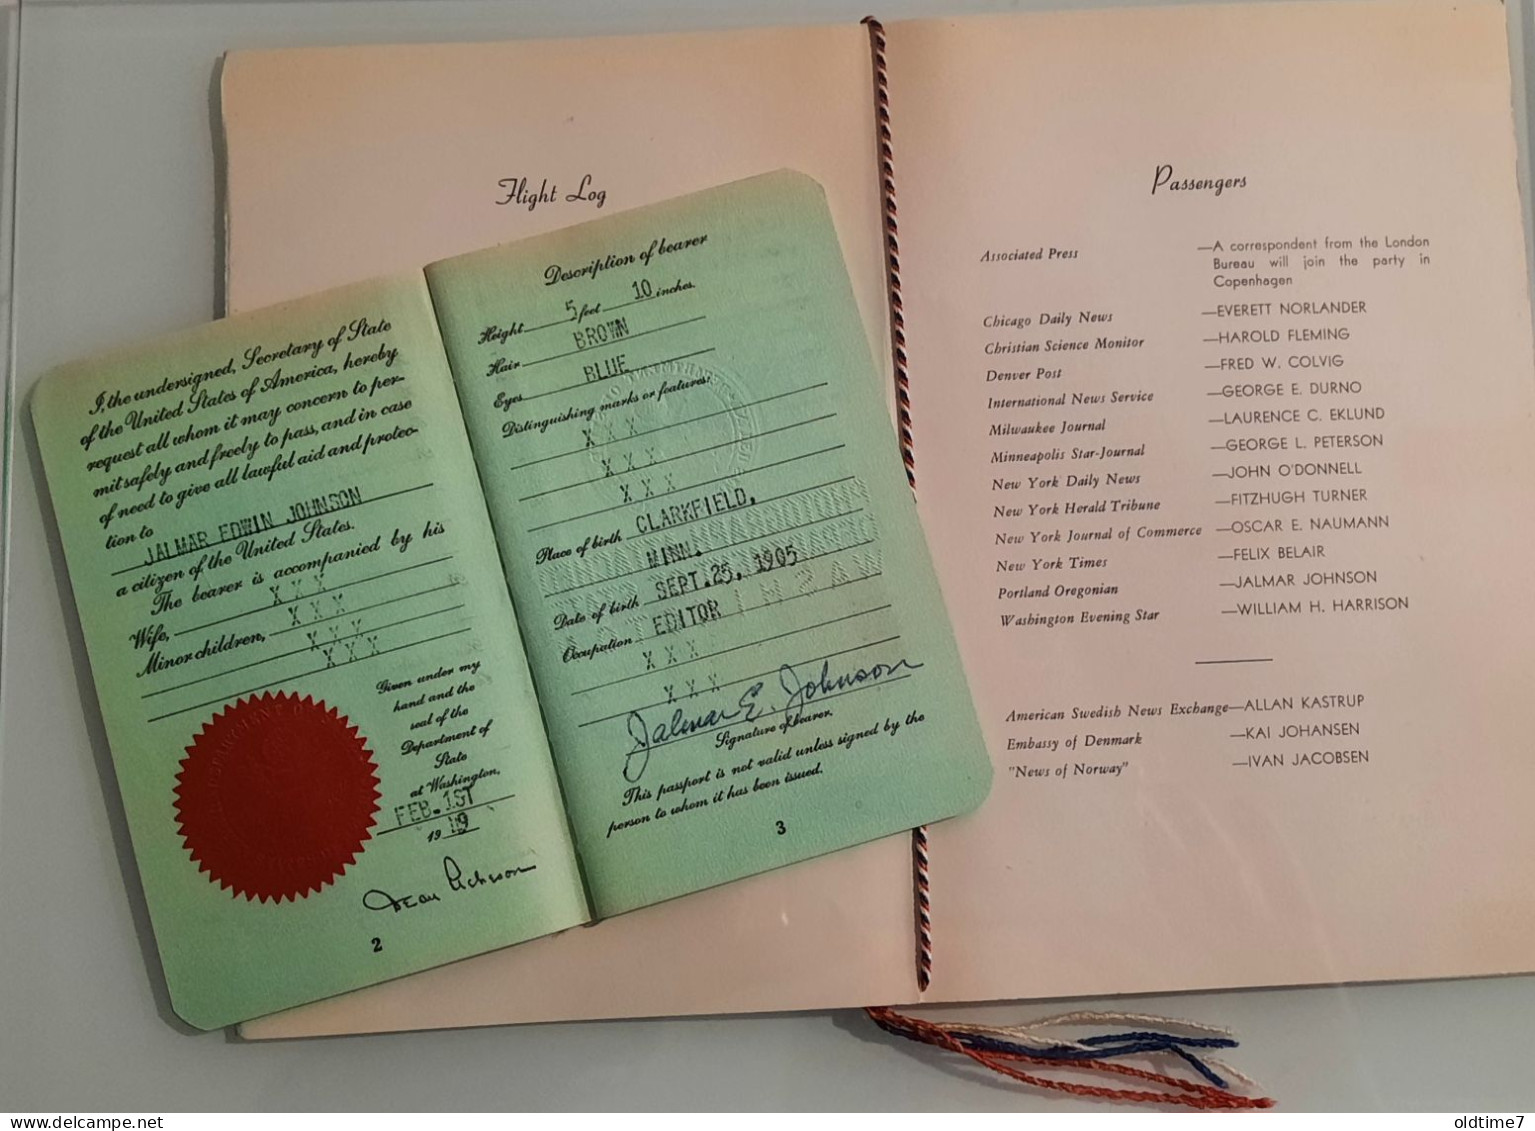 Flight Log
I, the undersigned, Secretary of State
of the United States of America, hereby
request all whom it may concern to per-
mit safely and freely to pass, and in case
of need to give all lawful aid and protec-
tion to
JALMAR EDWIN JOHNSON
a citizen of the United States.
The bearer is accompanied by his
X X X
Wife, X X X
Minor children, X X X
X X X
Given under my
hand and the
seal of the
Department of
State
at Washington,
FEB. 1ST
19 49
Dean Acheson
2
Description of bearer
Height 5 feet 10 inches.
Hair BROWN
Eyes BLUE
Distinguishing marks or features:
X X X
X X X
X X X
Place of birth CLARKFIELD,
MINN.
Date of birth SEPT.25, 1905
Occupation EDITOR
X X X
X X X
Jalmar E. Johnson
Signature of bearer.
This passport is not valid unless signed by the
person to whom it has been issued.
3
Passengers
Associated Press —A correspondent from the London
Bureau will join the party in
Copenhagen
Chicago Daily News —EVERETT NORLANDER
Christian Science Monitor —HAROLD FLEMING
Denver Post —FRED W. COLVIG
International News Service —GEORGE E. DURNO
Milwaukee Journal —LAURENCE C. EKLUND
Minneapolis Star-Journal —GEORGE L. PETERSON
New York Daily News —JOHN O'DONNELL
New York Herald Tribune —FITZHUGH TURNER
New York Journal of Commerce —OSCAR E. NAUMANN
New York Times —FELIX BELAIR
Portland Oregonian —JALMAR JOHNSON
Washington Evening Star —WILLIAM H. HARRISON
American Swedish News Exchange—ALLAN KASTRUP
Embassy of Denmark —KAI JOHANSEN
"News of Norway" —IVAN JACOBSEN
oldtime7